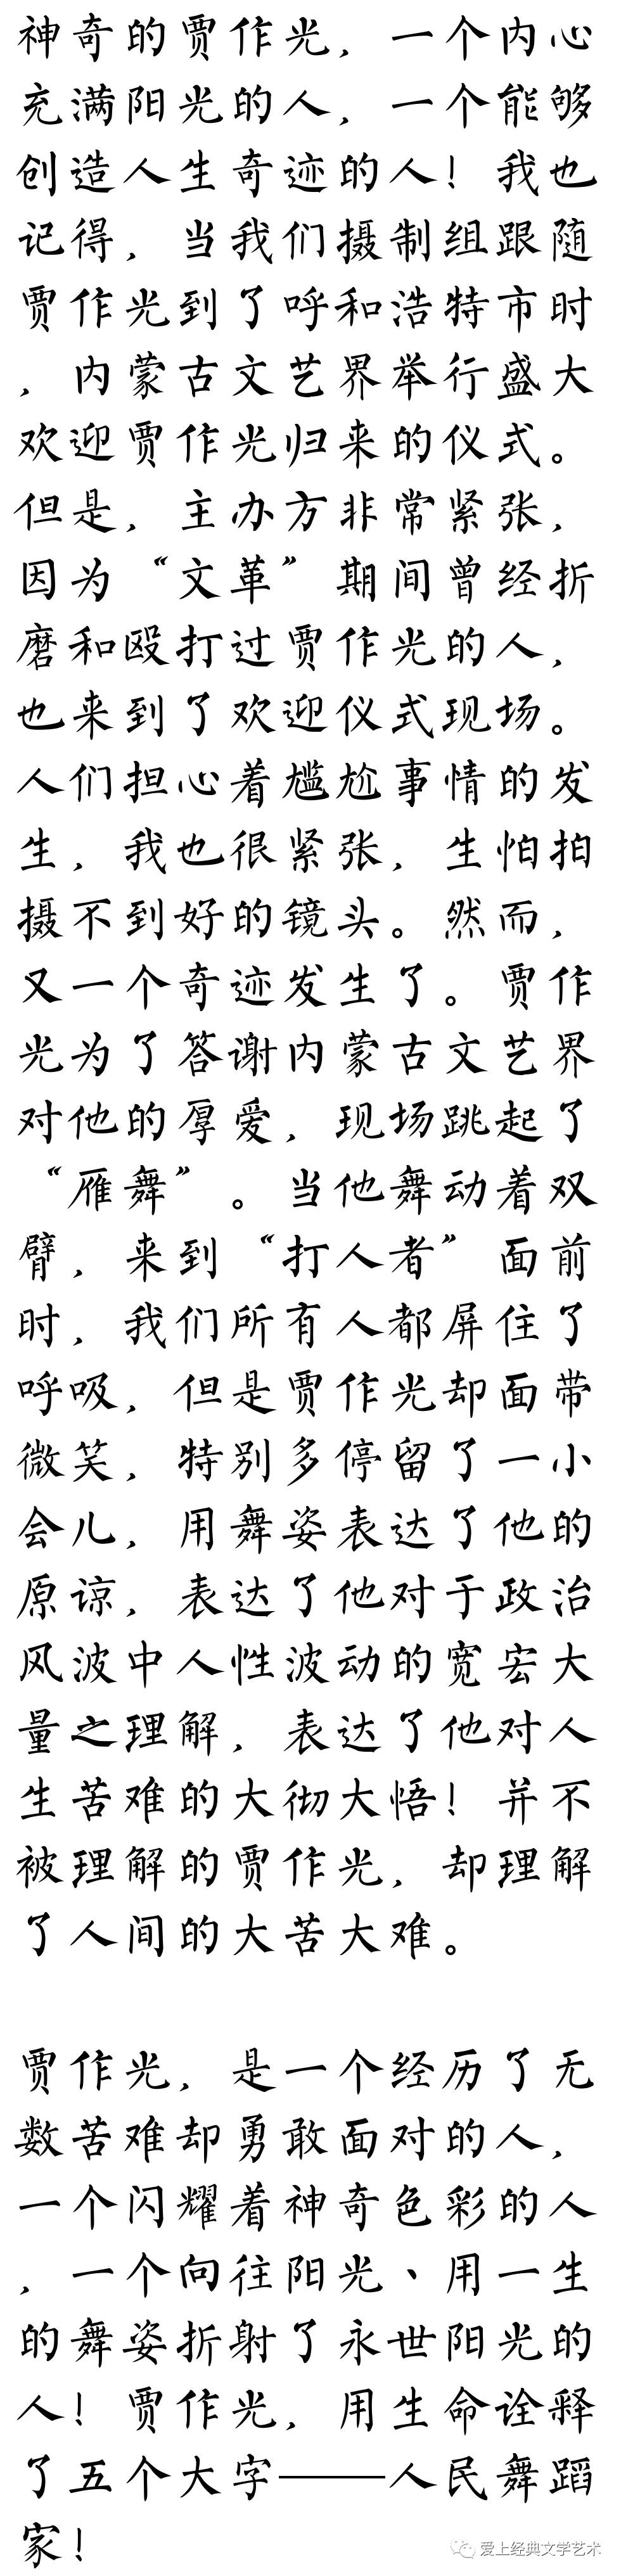 神奇的贾作光，一个内心
充满阳光的人，一个能够
创造人生奇迹的人！我也
记得，当我们摄制组跟随
贾作光到了呼和浩特市时
，内蒙古文艺界举行盛大
欢迎贾作光归来的仪式。
但是，主办方非常紧张，
因为“文革”期间曾经折
磨和殴打过贾作光的人，
也来到了欢迎仪式现场。
人们担心着尴尬事情的发
生，我也很紧张，生怕拍
摄不到好的镜头。然而，
又一个奇迹发生了。贾作
光为了答谢内蒙古文艺界
对他的厚爱，现场跳起了
“雁舞”。当他舞动着双
臂，来到“打人者”面前
时，我们所有人都屏住了
呼吸，但是贾作光却面带
微笑，特别多停留了一小
会儿，用舞姿表达了他的
原谅，表达了他对于政治
风波中人性波动的宽宏大
量之理解，表达了他对人
生苦难的大彻大悟！并不
被理解的贾作光，却理解
了人间的大苦大难。
贾作光，是一个经历了无
数苦难却勇敢面对的人，
一个闪耀着神奇色彩的人
，一个向往阳光、用一生
的舞姿折射了永世阳光的
人！贾作光，用生命诠释
了五个大字——人民舞蹈
家！
爱上经典文学艺术